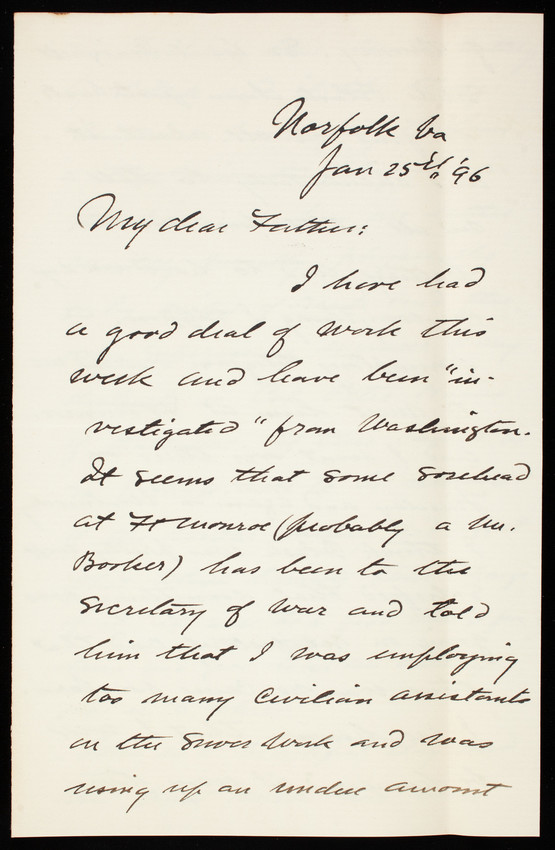 Norfolk Va
Jan 25th '96
My dear Father:
I have had
a good deal of work this
week and have been "in-
vestigated" from Washington.
It seems that some sorehead
at Ft Monroe (probably a Mr.
Booker) has been to the
Secretary of War and told
him that I was employing
too many civilian assistants
on the sewer work and was
using up an undue amount